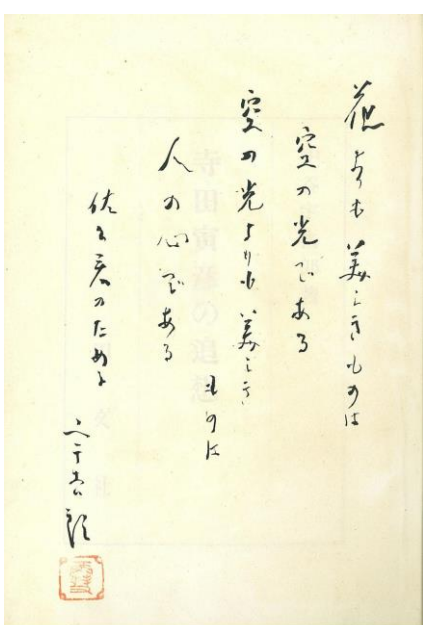 花よりも美しきものは
空の光である
空の光よりも美しき
ものは
人の心である
佐々君のために
宇吉郎
寺田寅彦の追想